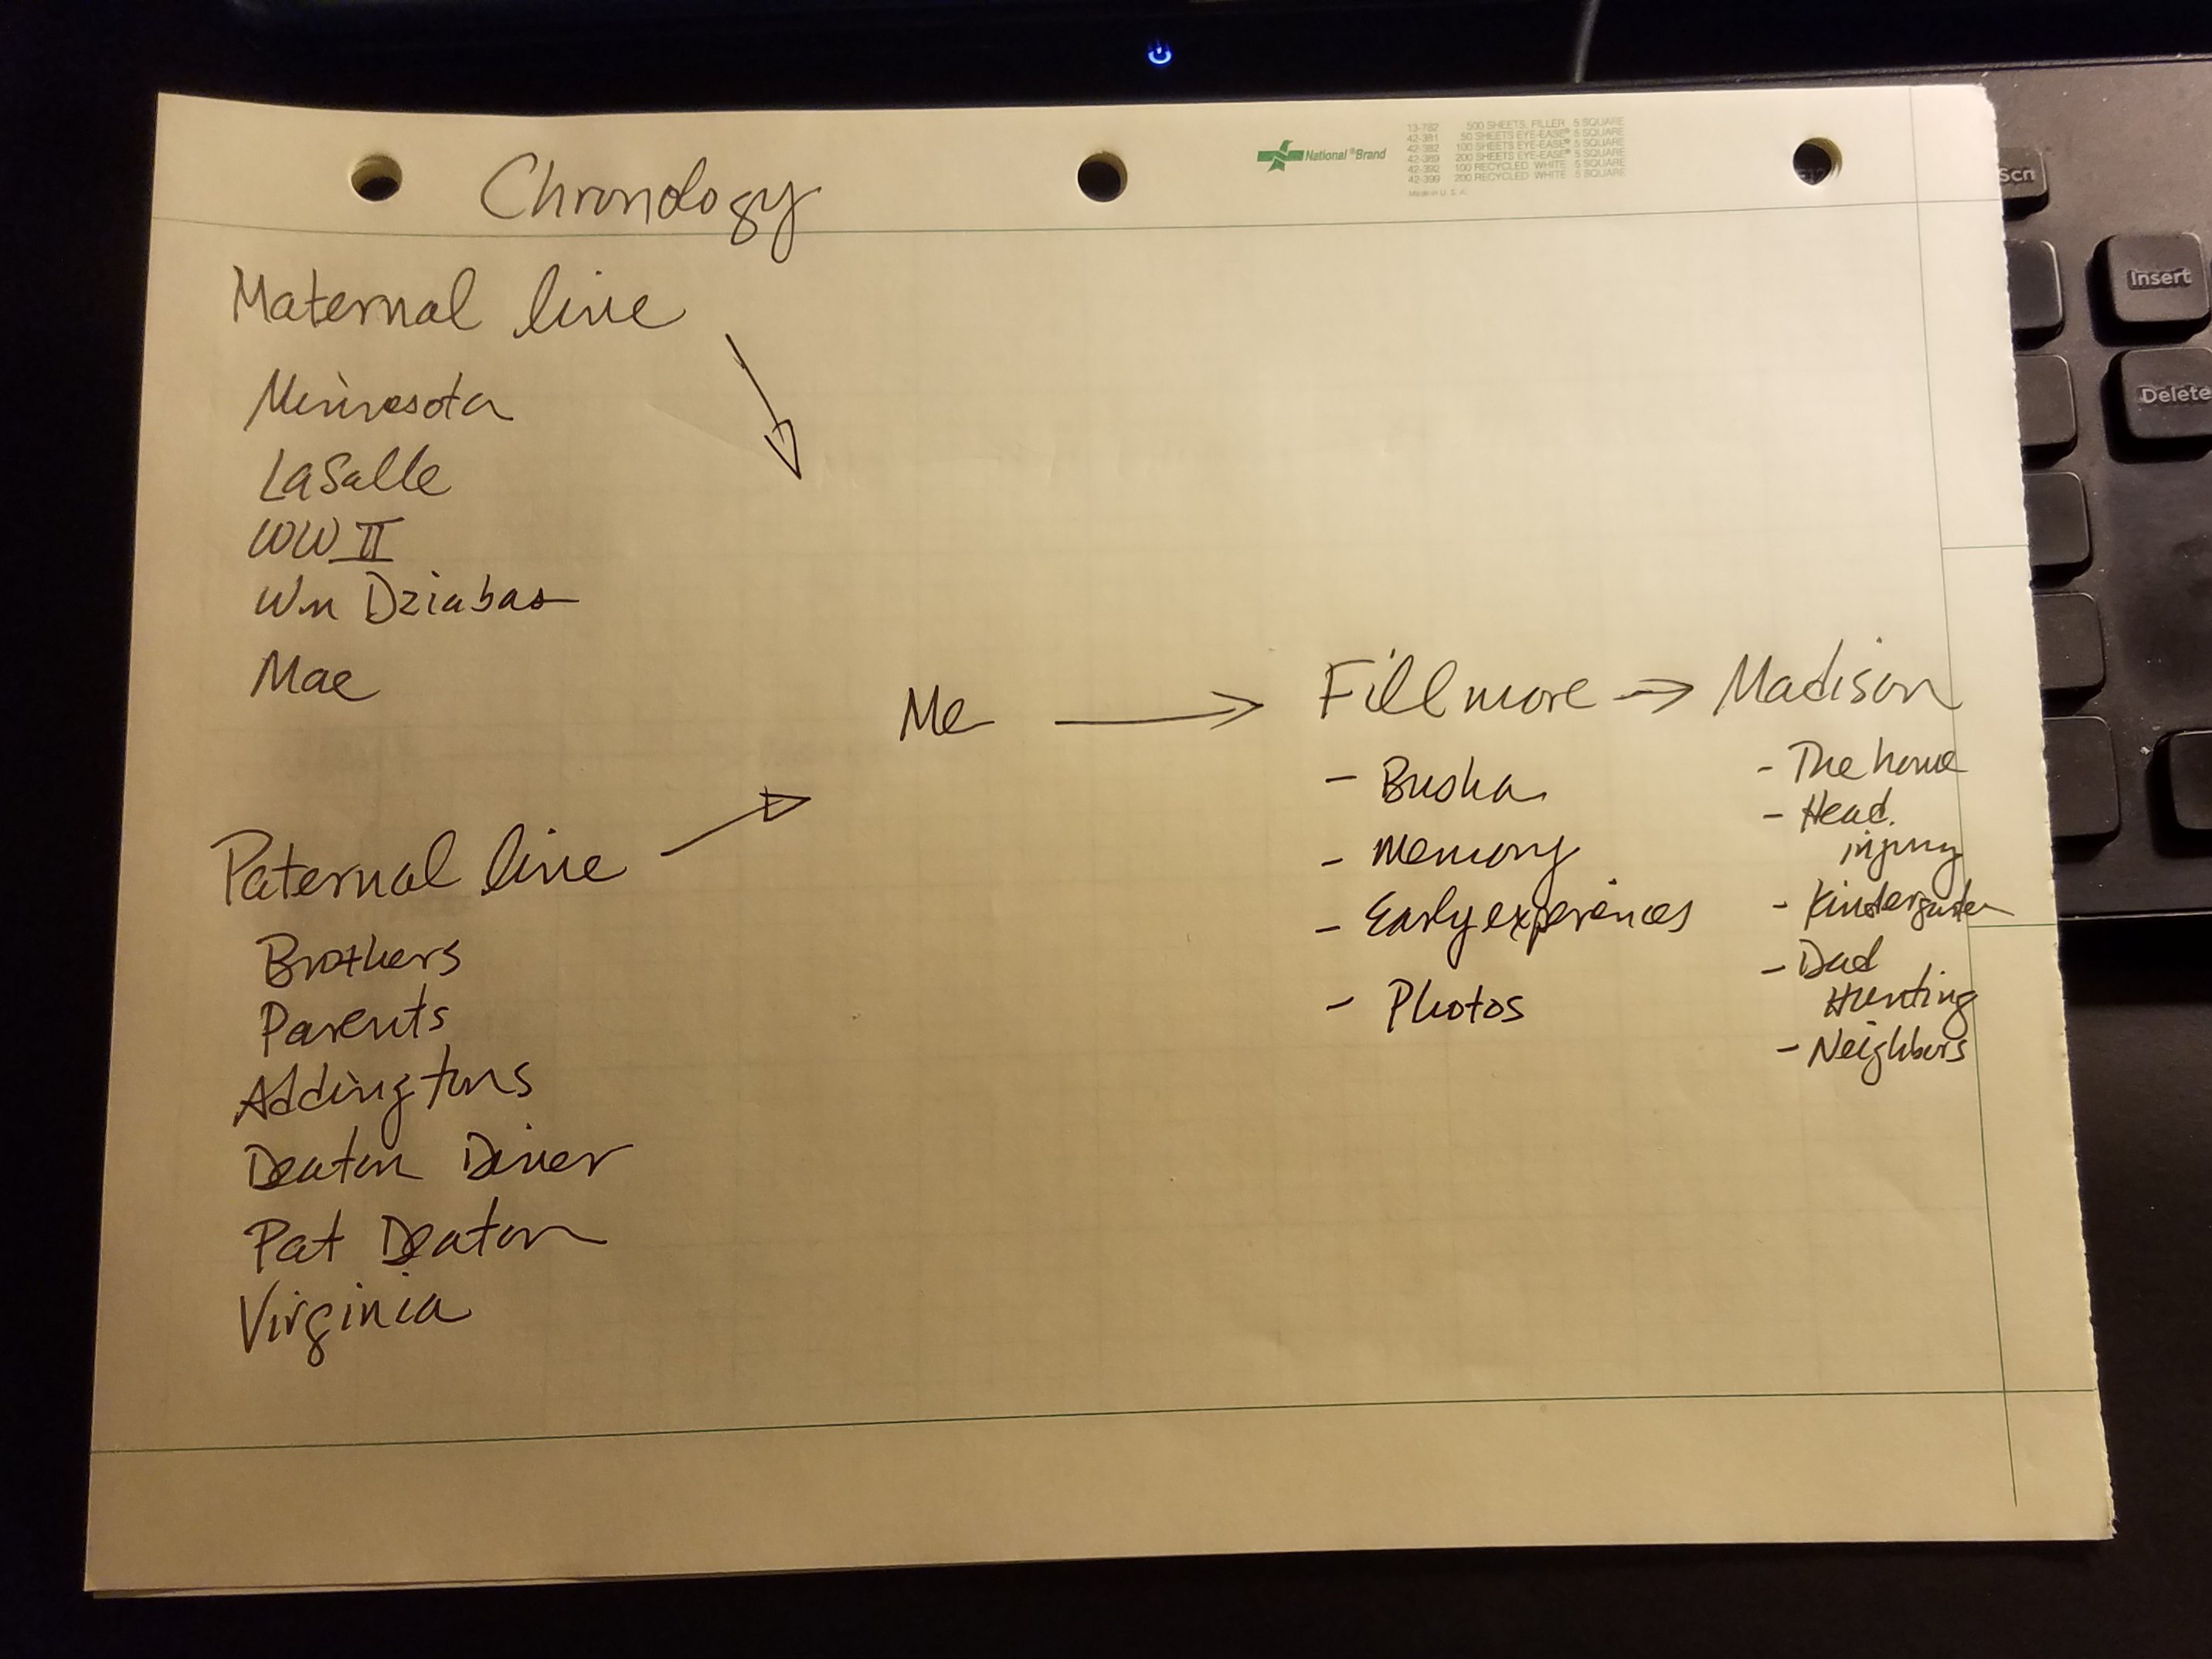 Chronology
National ®Brand
13-782 500 SHEETS, FILLER 5 SQUARE
42-381 50 SHEETS EYE-EASE® 5 SQUARE
42-382 100 SHEETS EYE-EASE® 5 SQUARE
42-389 200 SHEETS EYE-EASE® 5 SQUARE
42-392 100 RECYCLED WHITE 5 SQUARE
42-399 200 RECYCLED WHITE 5 SQUARE
Made in U. S. A.
Scn
Insert
Delete
Maternal line
Minnesota
LaSalle
WW II
Wm Dziabas
Mae
Me
Paternal line
Brothers
Parents
Addingtons
Deaton Diner
Pat Deaton
Virginia
Fillmore → Madison
- Busha
- Memory
- Early experiences
- Photos
- The home
- Head
injury
- Kindergarten
- Dad
Hunting
- Neighbors